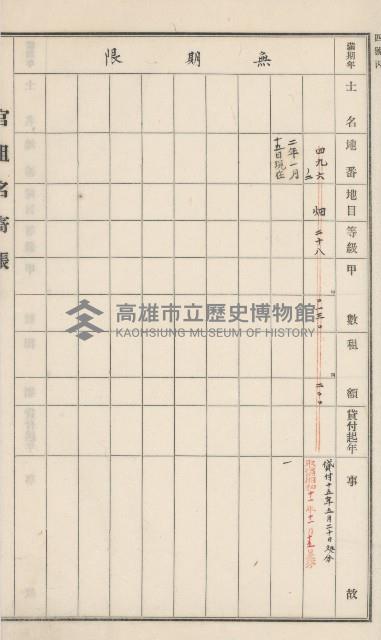 四號内
滿期年
土名
地番
地目
等級
甲數
租額
貸付起年
事故
無期限
四九六
ノ二
畑
二十八
〇一三〇
二〇〇
貸付十五年五月二十日起分
取消昭和十一年十一月十五日
二年一月
十五日現在
一
官租名寄帳
高雄市立歷史博物館
KAOHSIUNG MUSEUM OF HISTORY